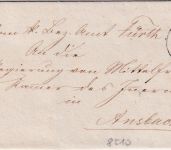 K. Bez. Amt Fürth
An die
Regierung von Mittelfr
Kammer des Innern
in
Ansbach